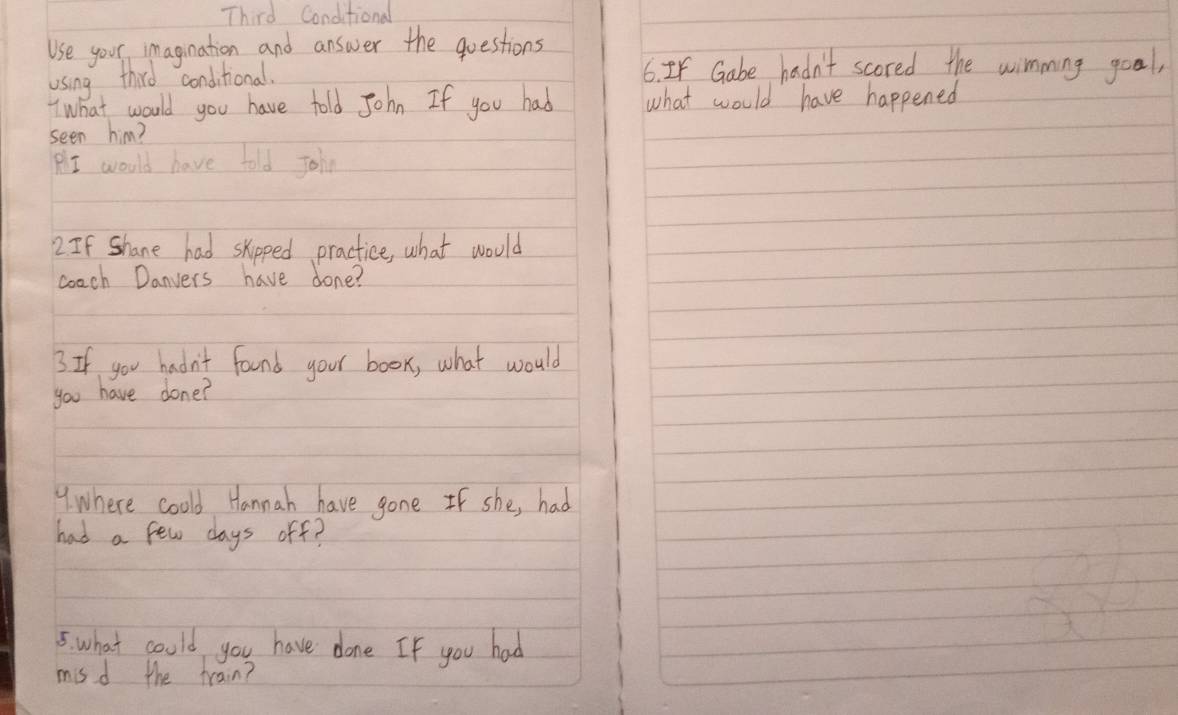 Third Conditional
Use your imagination and answer the questions
using third conditional.
1 What would you have told John If you had
seen him?
R/I would have told John
2 If Shane had skipped practice, what would
coach Danvers have done?
3 If you hadn't found your book, what would
you have done?
4. Where could Hannah have gone If she, had
had a few days off?
5. What could you have done If you had
misd the train?
6. If Gabe hadn't scored the wimming goal,
what would have happened